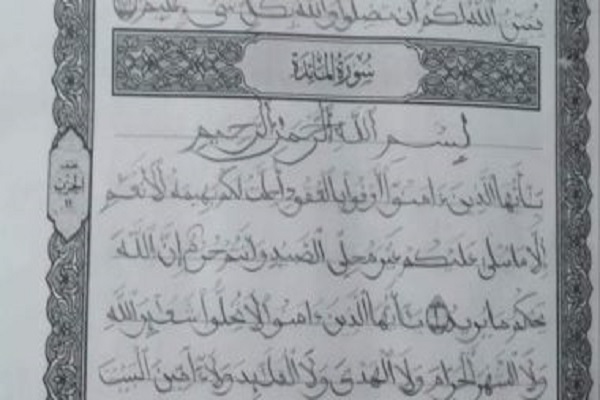 يبين الله لكم أن تضلوا والله بكل شيء عليم
سورة المائدة
بسم الله الرحمن الرحيم
يأيها الذين ءامنوا أوفوا بالعقود أحلت لكم بهيمة الأنعم
إلا ما يتلى عليكم غير محلي الصيد وأنتم حرم إن الله
يحكم ما يريد ١ يأيها الذين ءامنوا لا تحلوا شعئر الله
ولا الشهر الحرام ولا الهدي ولا القلئد ولا ءامين البيت
الحزب
١١